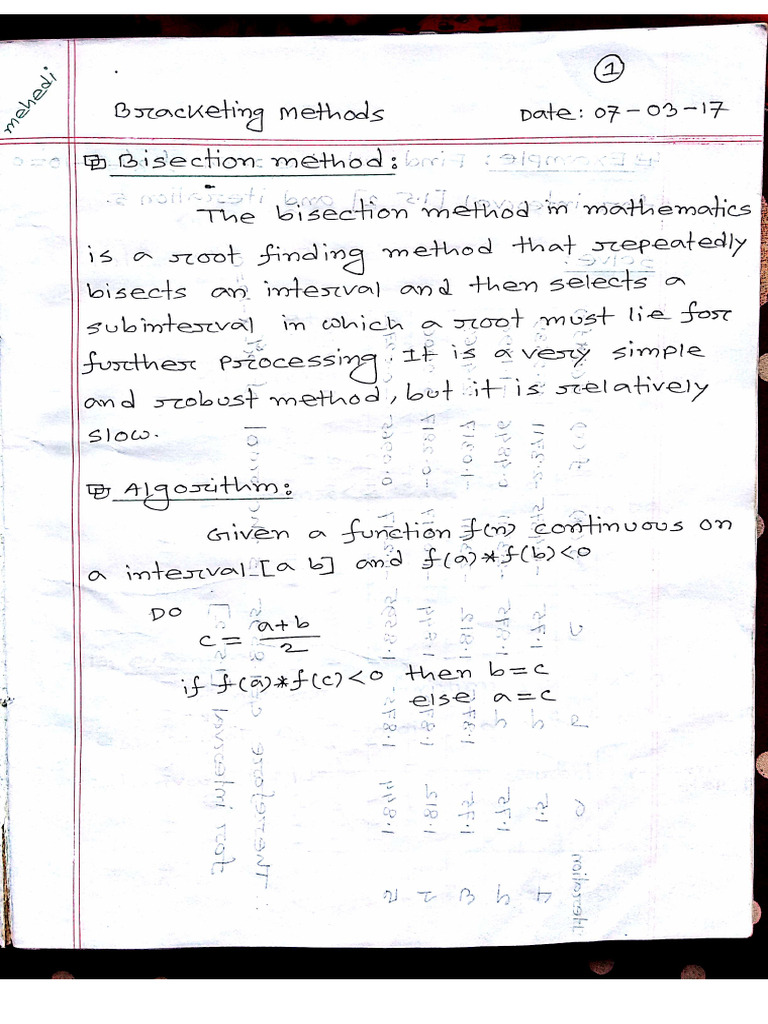 1
mehedi
Bracketing methods Date: 07-03-17
Bisection method:
The bisection method in mathematics
is a root finding method that repeatedly
bisects an interval and then selects a
subinterval in which a root must lie for
further processing. It is a very simple
and robust method, but it is relatively
slow.
Algorithm:
Given a function f(n) continuous on
a interval [a b] and f(a)*f(b)<0
DO
c = a+b/2
if f(a)*f(c)<0 then b=c
else a=c